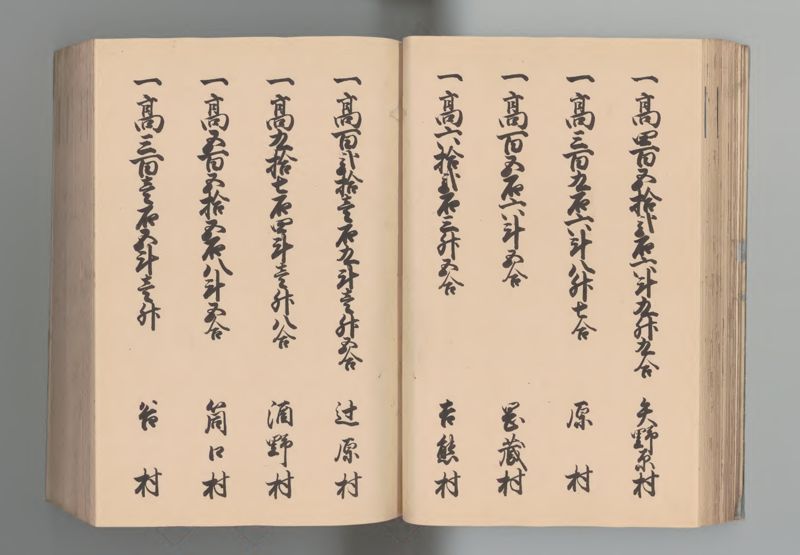 一高四百五拾弐石六斗九升九合 矢野原村
一高三百九石六斗八升七合 原村
一高百五石六斗五合 岡蔵村
一高六拾弐石三升五合 吉熊村
一高百弐拾壱石九斗壱升五合 辻原村
一高九拾七石四斗壱升八合 酒野村
一高五百五拾五石八斗五合 筒口村
一高三百壱石五斗壱升 谷村